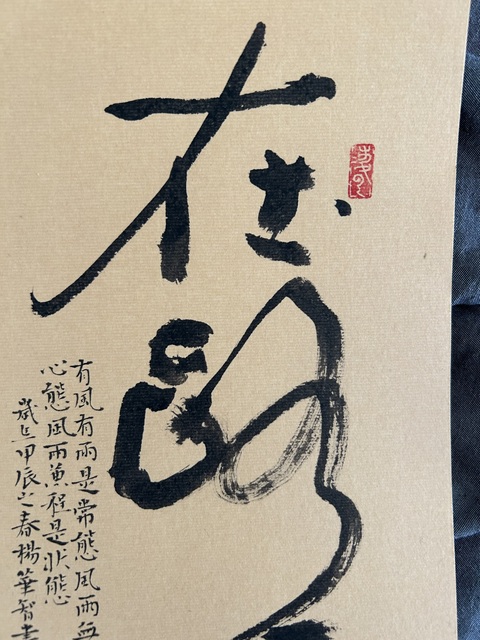 在路
有風有雨是常態風雨無
心態風雨兼程是狀態
歲在甲辰之春楊華智書